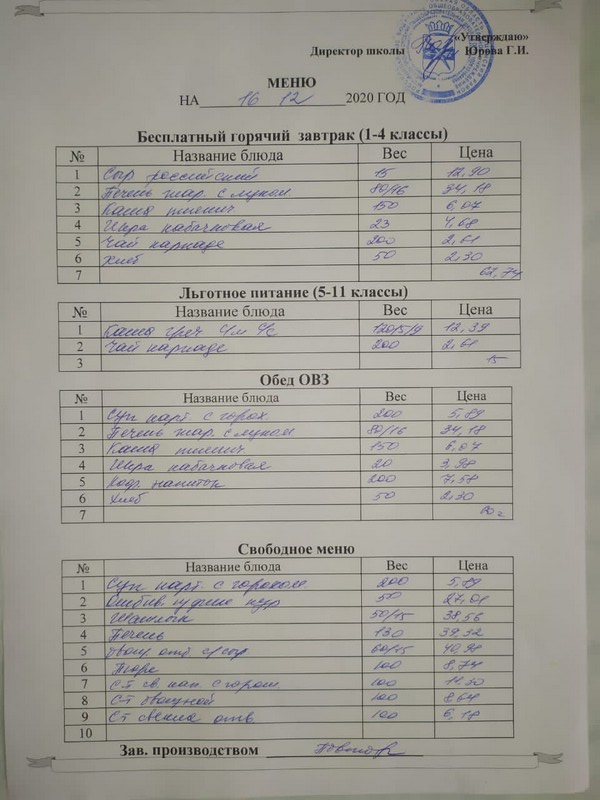 «Утверждаю»
Директор школы Юрова Г.И.
МЕНЮ
НА 16 12 2020 ГОД
Бесплатный горячий завтрак (1-4 классы)
№ Название блюда Вес Цена
1 Сыр российский 15 12,90
2 Печень жар. с луком 80/16 34,18
3 Каша пшенич 150 6,07
4 Икра кабачковая 23 4,68
5 Чай каркаде 200 2,61
6 Хлеб 50 2,30
7 62,74
Льготное питание (5-11 классы)
№ Название блюда Вес Цена
1 Каша греч 120/5/9 12,39
2 Чай каркаде 200 2,61
3 15
Обед ОВЗ
№ Название блюда Вес Цена
1 Суп карт. с горох. 200 5,89
2 Печень жар. с луком 80/16 34,18
3 Каша пшенич 150 6,07
4 Икра кабачковая 20 3,98
5 напиток 200 7,58
6 Хлеб 50 2,30
7
Свободное меню
№ Название блюда Вес Цена
1 Суп карт. с горохом 200 5,89
2 50 27,01
3 50/15 38,56
4 Печень 130 39,32
5 60/15 40,98
6 Пюре 100 8,74
7 С-т св. кап. с горош. 100 11.30
8 С-т овощной 100 8,64
9 С-т свекла отв. 100 6,18
10
Зав. производством